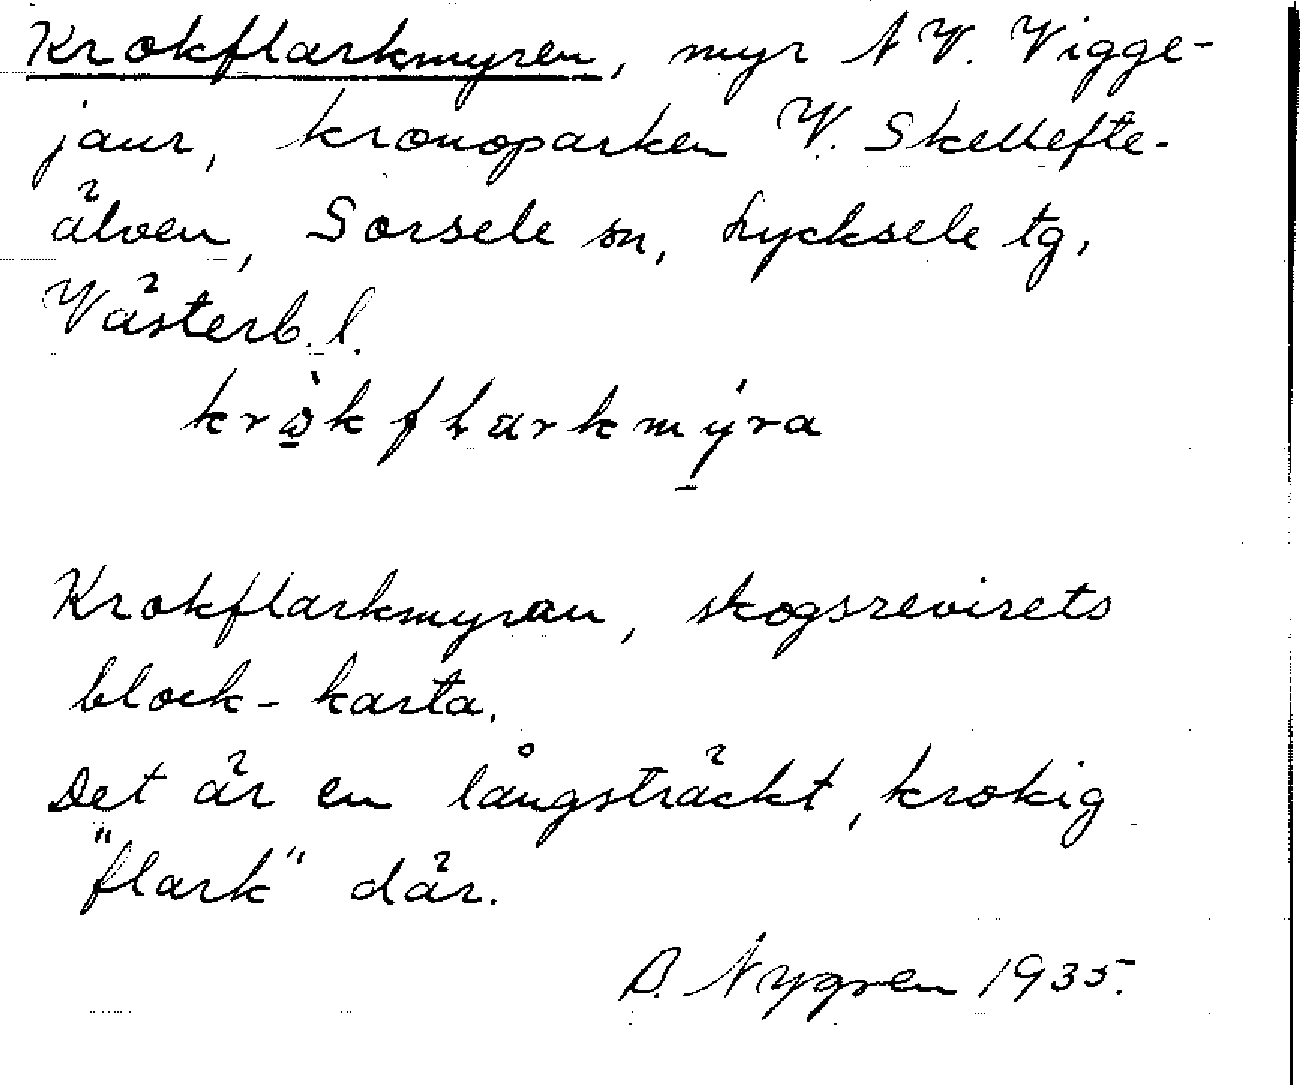 Krokflarkmyren, myr N V. Vigge-
jaur, kronoparken V. Skellefte-
älven, Sorsele sn, Lycksele tg,
Västerb. l.
krò̱kflarkmý̱ra
Krokflarkmyran, skogsrevirets
block-karta.
Det är en långsträckt, krokig
"flark" där.
B. Nygren 1935.